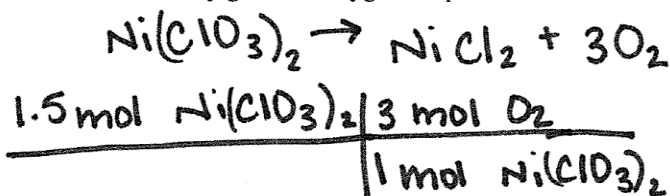 Ni(ClO₃)₂ → NiCl₂ + 3O₂
1.5 mol Ni(ClO₃)₂ | 3 mol O₂
| 1 mol Ni(ClO₃)₂